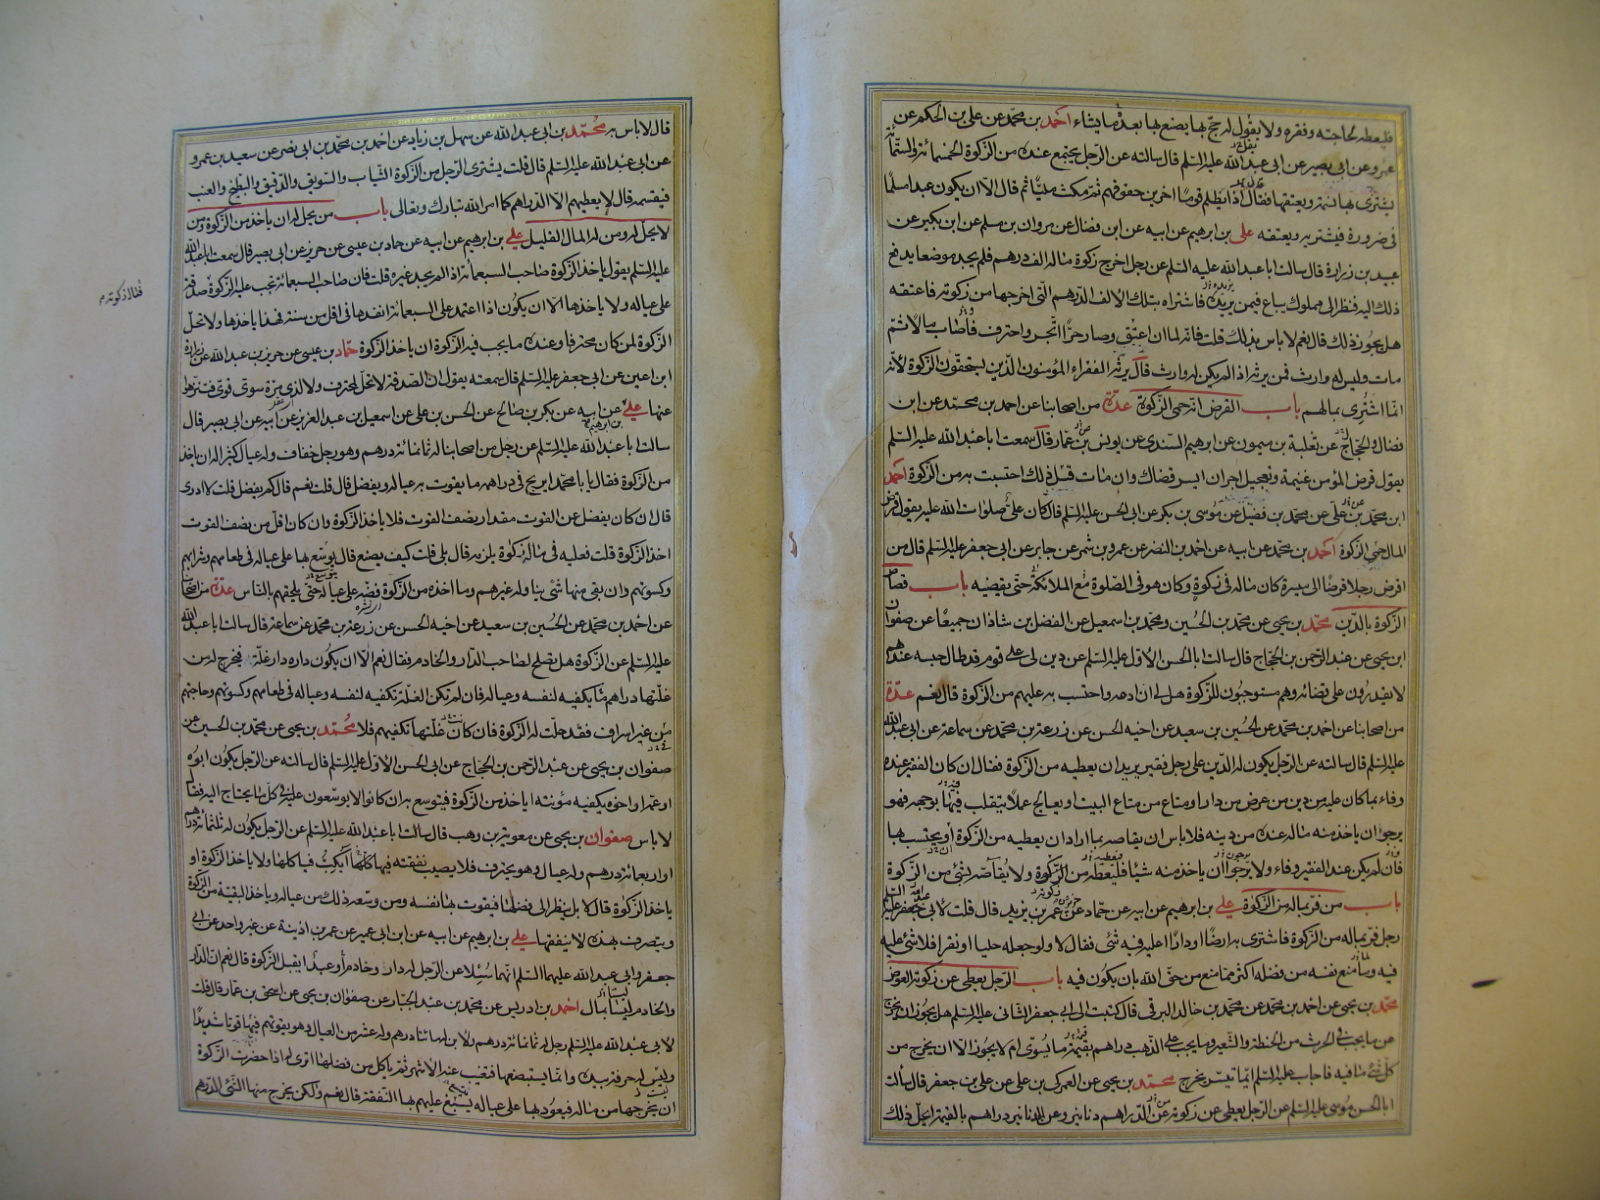 فليعطه لحاجته وفقره ولا يقول له حج بها يصنع بها بعد ما يشاء احمد بن محمد عن على بن الحكم عن
عمرو عن ابى بصير عن ابى عبد الله عليه السلم قال سالته عن الرجل يجتمع عنده من الزكوة الخمسمائة والستمائة
يشترى بها نسمة ويعتقها فقال اذا يظلم قوما اخرين حقوقهم ثم مكث مليا ثم قال الا ان يكون عبدا مسلما
فى ضرورة فيشتريه ويعتقه على بن ابرهيم عن ابيه عن ابن فضال عن مروان بن مسلم عن ابن بكير عن
عبيد بن زرارة قال سالت ابا عبد الله عليه السلم عن رجل اخرج زكوة ماله الف درهم فلم يجد موضعا يدفع
ذلك اليه فنظر الى مملوك يباع فيمن يريد فاشتراه بتلك الالف الدرهم التى اخرجها من زكوته فاعتقه
هل يجوز ذلك قال نعم لا باس بذلك قلت فانه لما ان اعتق وصار حرا اتجر واحترف فاصاب مالا ثم
مات وليس له وارث فمن يرثه اذا لم يكن له وارث قال يرثه الفقراء المؤمنون الذين يستحقون الزكوة لانه
انما اشترى بمالهم باب القرض انه حمى الزكوة عدة من اصحابنا عن احمد بن محمد عن ابن
فضال والحجاج عن ثعلبة بن ميمون عن ابرهيم السندى عن يونس بن عمار قال سمعت ابا عبد الله عليه السلم
يقول قرض المؤمن غنيمة وتعجيل اجر ان ايسر قضاك وان مات قبل ذلك احتسبت به من الزكوة احمد
ابن محمد بن على عن محمد بن فضيل عن موسى بن بكر عن ابى الحسن عليه السلم قال كان على صلوات الله عليه يقول قرض
المال حمى الزكوة احمد بن محمد عن ابيه عن احمد بن النضر عن عمرو بن شمر عن جابر عن ابى جعفر عليه السلم قال من
اقرض رجلا قرضا الى ميسرة كان ماله فى زكوة وكان هو فى الصلوة مع الملائكة حتى يقضيه باب قصاص
الزكوة بالدين محمد بن يحيى عن محمد بن الحسين ومحمد بن اسمعيل عن الفضل بن شاذان جميعا عن صفوان
ابن يحيى عن عبد الرحمن بن الحجاج قال سالت ابا الحسن الاول عليه السلم عن دين لى على قوم قد طال حبسه عندهم
لا يقدرون على قضائه وهم مستوجبون للزكوة هل لى ان ادعه واحتسب به عليهم من الزكوة قال نعم عدة
من اصحابنا عن احمد بن محمد عن الحسين بن سعيد عن اخيه الحسن عن زرعة بن محمد عن سماعة عن ابى عبد الله
عليه السلم قال سالته عن الرجل يكون له الدين على رجل فقير يريد ان يعطيه من الزكوة فقال ان كان الفقير عنده
وفاء بما كان عليه من دين من عرض من دار او متاع من متاع البيت او يعالج عملا يتقلب فيها بوجهه فهو
يرجو ان ياخذ منه ماله عنده من دينه فلا باس ان يقاصه بما اراد ان يعطيه من الزكوة او يحتسب بها
فان لم يكن عند الفقير وفاء ولا يرجوا ان ياخذ منه شيئا فليعطه من الزكوة ولا يقاصه بشئ من الزكوة
باب من فر بماله من الزكوة على بن ابرهيم عن ابيه عن حماد عن عمر بن يزيد قال قلت لابى جعفر عليه السلم
رجل فر بماله من الزكوة فاشترى به ارضا او دارا اعليه فيه شئ فقال لا ولو جعله حليا او نقرا فلا شئ عليه
فيه وما منع نفسه من فضله اكثر مما منع من حق الله بان يكون فيه باب الرجل يعطى عن زكوته العوض
محمد بن يحيى عن احمد بن محمد عن محمد بن خالد البرقى قال كتبت الى ابى جعفر الثانى عليه السلم هل يجوز ان يخرج
عن ما يجب فى الحرث من الحنطة والشعير وما يجب على الذهب دراهم بقيمة ما يسوى ام لا يجوز الا ان يخرج من
كل شئ ما فيه فاجاب عليه السلم ايما تيسر يخرج محمد بن يحيى عن العمركى بن على عن على بن جعفر قال سالت
ابا الحسن موسى عليه السلم عن الرجل يعطى عن زكوته عن الدراهم دنانير وعن الدنانير دراهم بالقيمة ايحل ذلك
قال لا باس به محمد بن ابى عبد الله عن سهل بن زياد عن احمد بن محمد بن ابى نصر عن سعيد بن عمرو
عن ابى عبد الله عليه السلم قال قلت يشترى الرجل من الزكوة الثياب والسويق والدقيق والبطيخ والعنب
فيقسمه قال لا يعطيهم الا الدراهم كما امر الله تبارك وتعالى باب من يحل له ان ياخذ من الزكوة ومن
لا يحل له ومن له المال القليل على بن ابرهيم عن ابيه عن حماد بن عيسى عن حريز عن ابى بصير قال سمعت ابا عبد الله
عليه السلم يقول ياخذ الزكوة صاحب السبعمائة اذا لم يجد غيره قلت فان صاحب السبعمائة تجب عليه الزكوة صدقة
على عياله ولا ياخذها الا ان يكون اذا اعتمد على السبعمائة انفدها فى اقل من سنة فهذا ياخذها ولا تحل
الزكوة لمن كان محترفا وعنده ما يجب فيه الزكوة ان ياخذ الزكوة حماد بن عيسى عن حريز بن عبد الله عن زرارة
ابن اعين عن ابى جعفر عليه السلم قال سمعته يقول ان الصدقة لا تحل لمحترف ولا لذى مرة سوى قوى فتنزهوا
عنها على عن ابيه عن بكر بن صالح عن الحسن بن على عن اسمعيل بن عبد العزيز عن ابيه عن ابى بصير قال
بن ابرهيم
سالت ابا عبد الله عليه السلم عن رجل من اصحابنا له ثمانمائة درهم وهو رجل خفاف وله عيال كثير اله ان ياخذ
من الزكوة فقال يا با محمد ايربح فى دراهمه ما يقوت به عياله ويفضل قال قلت نعم قال كم يفضل قلت لا ادرى
قال ان كان يفضل عن القوت مقدار نصف القوت فلا ياخذ الزكوة وان كان اقل من نصف القوت
اخذ الزكوة قلت فعليه فى ماله زكوة يلزمه قال بلى قلت كيف يصنع قال يوسع بها على عياله فى طعامهم وشرابهم
وكسوتهم وان بقى منها شئ يناوله غيرهم وما اخذه من الزكوة فضه على عياله حتى يلحقهم بالناس عدة من اصحابنا
عن احمد بن محمد عن الحسين بن سعيد عن اخيه الحسن عن زرعة بن محمد عن سماعة قال سالت ابا عبد الله
عليه السلم عن الزكوة هل تصلح لصاحب الدار والخادم فقال نعم الا ان يكون داره دار غلة فيخرج له من
غلتها دراهم ما يكفيه لنفسه وعياله فان لم تكن الغلة تكفيه لنفسه وعياله فى طعامهم وكسوتهم وحاجتهم
من غير اسراف فقد حلت له الزكوة فان كان غلتها تكفيهم فلا محمد بن يحيى عن محمد بن الحسين عن
صفوان بن يحيى عن عبد الرحمن بن الحجاج عن ابى الحسن الاول عليه السلم قال سالته عن الرجل يكون ابوه
او عمه او اخوه يكفيه مؤنته اياخذ من الزكوة فيتوسع به ان كانوا لا يوسعون عليه فى كل ما يحتاج اليه فقال
لا باس صفوان بن يحيى عن معوية بن وهب قال سالت ابا عبد الله عليه السلم عن الرجل يكون له ثلثمائة درهم
او اربعمائة درهم وله عيال وهو يحترف فلا يصيب نفقته فيها ايكب فياكلها ولا ياخذ الزكوة او
ياخذ الزكوة قال لا بل ينظر الى فضلها فيقوت بها نفسه ومن وسعه ذلك من عياله وياخذ البقية من الزكوة
ويتصرف بهذه لا ينفقها على بن ابرهيم عن ابيه عن ابن ابى عمير عن عمر بن اذينة عن غير واحد عن ابى
جعفر وابى عبد الله عليهما السلم انهما سئلا عن الرجل له دار وخادم او عبد ايقبل الزكوة قال نعم ان الدار
والخادم ليسا بمال احمد بن ادريس عن محمد بن عبد الجبار عن صفوان بن يحيى عن اسحق بن عمار قال قلت
لابى عبد الله عليه السلم رجل له ثمانمائة درهم ولابن له مائتا درهم وله عشر من العيال وهو يقوتهم فيها قوتا شديدا
وليس له حرفة بيده وانما يستبضعها فتغيب عنه الاشهر ثم ياكل من فضلها اترى له اذا حضرت الزكوة
ان يخرجها من ماله فيعود بها على عياله يسبغ عليهم بها النفقة قال نعم ولكن يخرج منها الشئ الدرهم